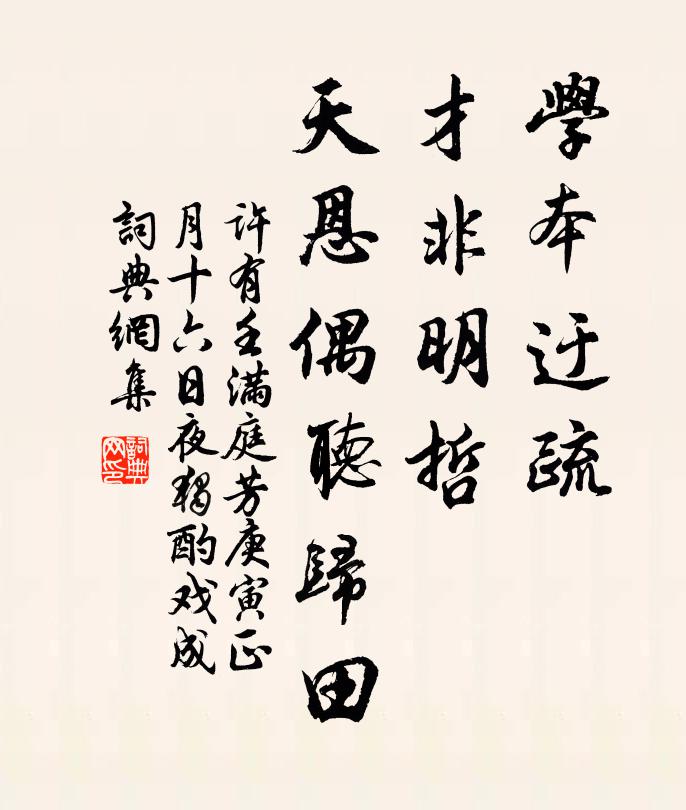 學本迂疏
才非明哲
天恩偶聽歸田
许有壬滿庭芳庚寅正
月十六日夜獨酌戏成
詞典網集
詞典网印